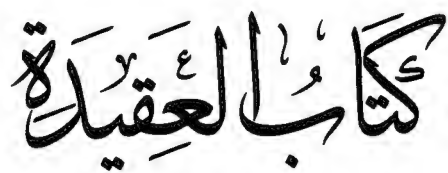 كتَابُ العَقِيدَةِ